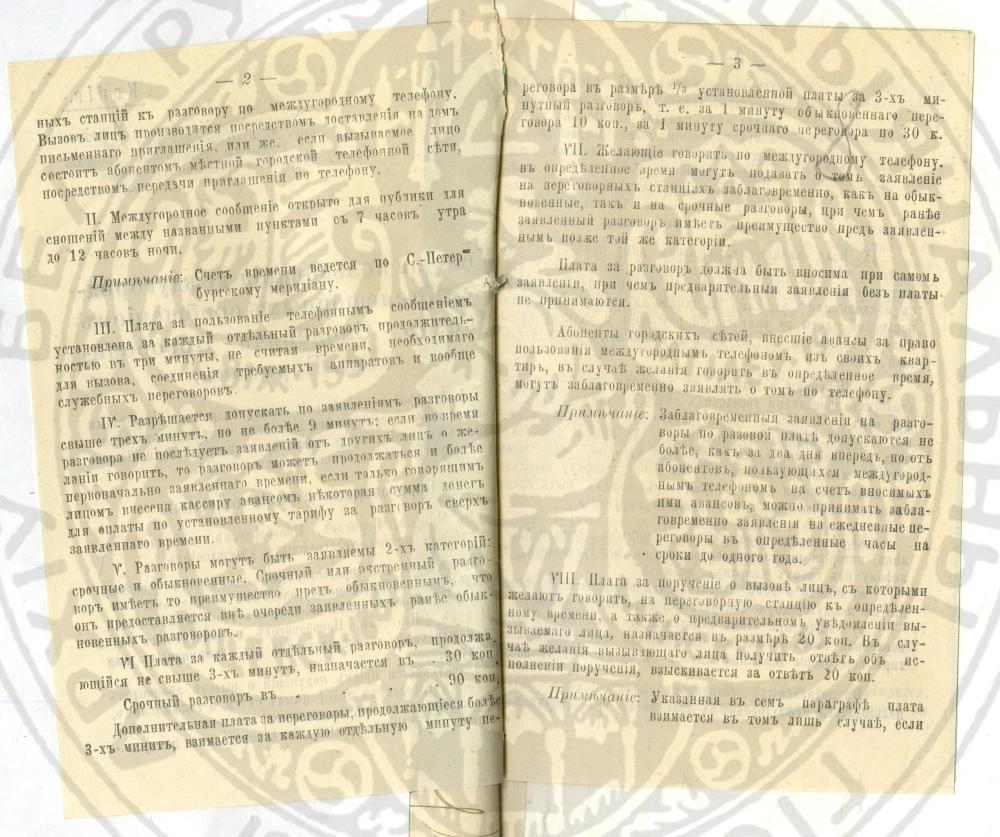 — 2 —
ныхъ станцій къ разговору по междугородному телефону.
Вызовъ лицъ производится посредствомъ доставленія на домъ
письменнаго приглашенія, или же, если вызываемое лицо
состоитъ абонентомъ мѣстной городской телефонной сѣти,
посредствомъ передачи приглашенія по телефону.
II. Междугородное сообщеніе открыто для публики для
сношеній между названными пунктами съ 7 часовъ утра
до 12 часовъ ночи.
Примѣчаніе: Счетъ времени ведется по С.-Петер-
бургскому меридіану.
III. Плата за пользованіе телефоннымъ сообщеніемъ
установлена за каждый отдѣльный разговоръ продолжитель-
ностью въ три минуты, не считая времени, необходимаго
для вызова, соединенія требуемыхъ аппаратовъ и вообще
служебныхъ переговоровъ.
IV. Разрѣшается допускать по заявленіямъ разговоры
свыше трехъ минутъ, но не болѣе 9 минутъ; если во время
разговора не послѣдуетъ заявленій отъ другихъ лицъ о же-
ланіи говорить, то разговоръ можетъ продолжаться и болѣе
первоначально заявленнаго времени, если только говорящимъ
лицомъ внесена кассиру авансомъ нѣкоторая сумма денегъ
для оплаты по установленному тарифу за разговоръ сверхъ
заявленнаго времени.
V. Разговоры могутъ быть заявляемы 2-хъ категорій:
срочные и обыкновенные. Срочный или экстренный разго-
воръ имѣетъ то преимущество предъ обыкновеннымъ, что
онъ предоставляется внѣ очереди заявленныхъ ранѣе обык-
новенныхъ разговоровъ.
VI Плата за каждый отдѣльный разговоръ, продолжа-
ющійся не свыше 3-хъ минутъ, назначается въ . 30 коп.
Срочный разговоръ въ . . . . 90 коп.
Дополнительная плата за переговоры, продолжающіеся болѣе
3-хъ минитъ, взимается за каждую отдѣльную минуту пе-
— 3 —
реговора въ размѣрѣ 1/3 установленной платы за 3-хъ ми-
нутный разговоръ, т. е. за 1 минуту обыкновеннаго пере-
говора 10 коп., за 1 минуту срочнаго переговора по 30 к.
VII. Желающіе говорить по междугородному телефону.
въ опредѣленное время могутъ подавать о томъ заявленіе
на переговорныхъ станціяхъ заблаговременно, какъ на обык-
новенные, такъ и на срочные разговоры, при чемъ ранѣе
заявленный разговоръ имѣетъ преимущество предъ заявлен-
нымъ позже той же категоріи.
Плата за разговоръ должна быть вносима при самомъ
заявленіи, при чемъ предварительныя заявленія безъ платы
не принимаются.
Абоненты городскихъ сѣтей, внесшіе авансы за право
пользованія междугороднымъ телефономъ изъ своихъ квар-
тиръ, въ случаѣ желанія говорить въ опредѣленное время,
могутъ заблаговременно заявлять о томъ по телефону.
Примѣчаніе: Заблаговременныя заявленія на разго-
воры по разовой платѣ допускаются не
болѣе, какъ за два дня впередъ, но отъ
абонентовъ, пользующихся междугород-
нымъ телефономъ на счетъ вносимыхъ
ими авансовъ, можно принимать забла-
говременно заявленія на ежедневные пе-
реговоры въ опредѣленные часы на
сроки до одного года.
VIII. Плата за порученіе о вызовѣ лицъ, съ которыми
желаютъ говорить, на переговорную станцію къ опредѣлен-
ному времени, а также о предварительномъ увѣдомленіи вы-
зываемаго лица, назначается въ размѣрѣ 20 коп. Въ слу-
чаѣ желанія вызывающаго лица получить отвѣтъ объ ис-
полненіи порученія, взыскивается за отвѣтъ 20 коп.
Примѣчаніе: Указанная въ семъ параграфѣ плата
взимается въ томъ лишь случаѣ, если